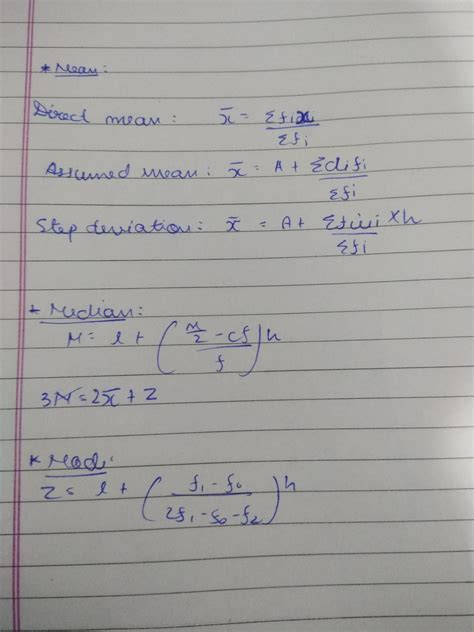 * Mean:
Direct mean: x̄ = Σfixi / Σfi
Assumed mean: x̄ = A + Σdifi / Σfi
Step deviation: x̄ = A + Σfiui / Σfi × h
* Median:
M = l + (N/2 - cf / f) h
3M = 2x̄ + Z
* Mode:
Z = l + (f₁ - f₀ / 2f₁ - f₀ - f₂) h